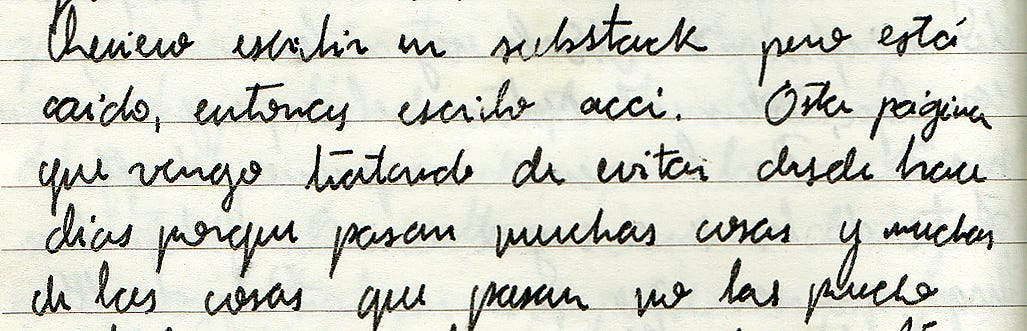 Quiero escribir en substack pero está
caido, entonces escribo acá. Esta página
que vengo tratando de evitar desde hace
dias porque pasan muchas cosas y muchas
de las cosas que pasan no las puedo